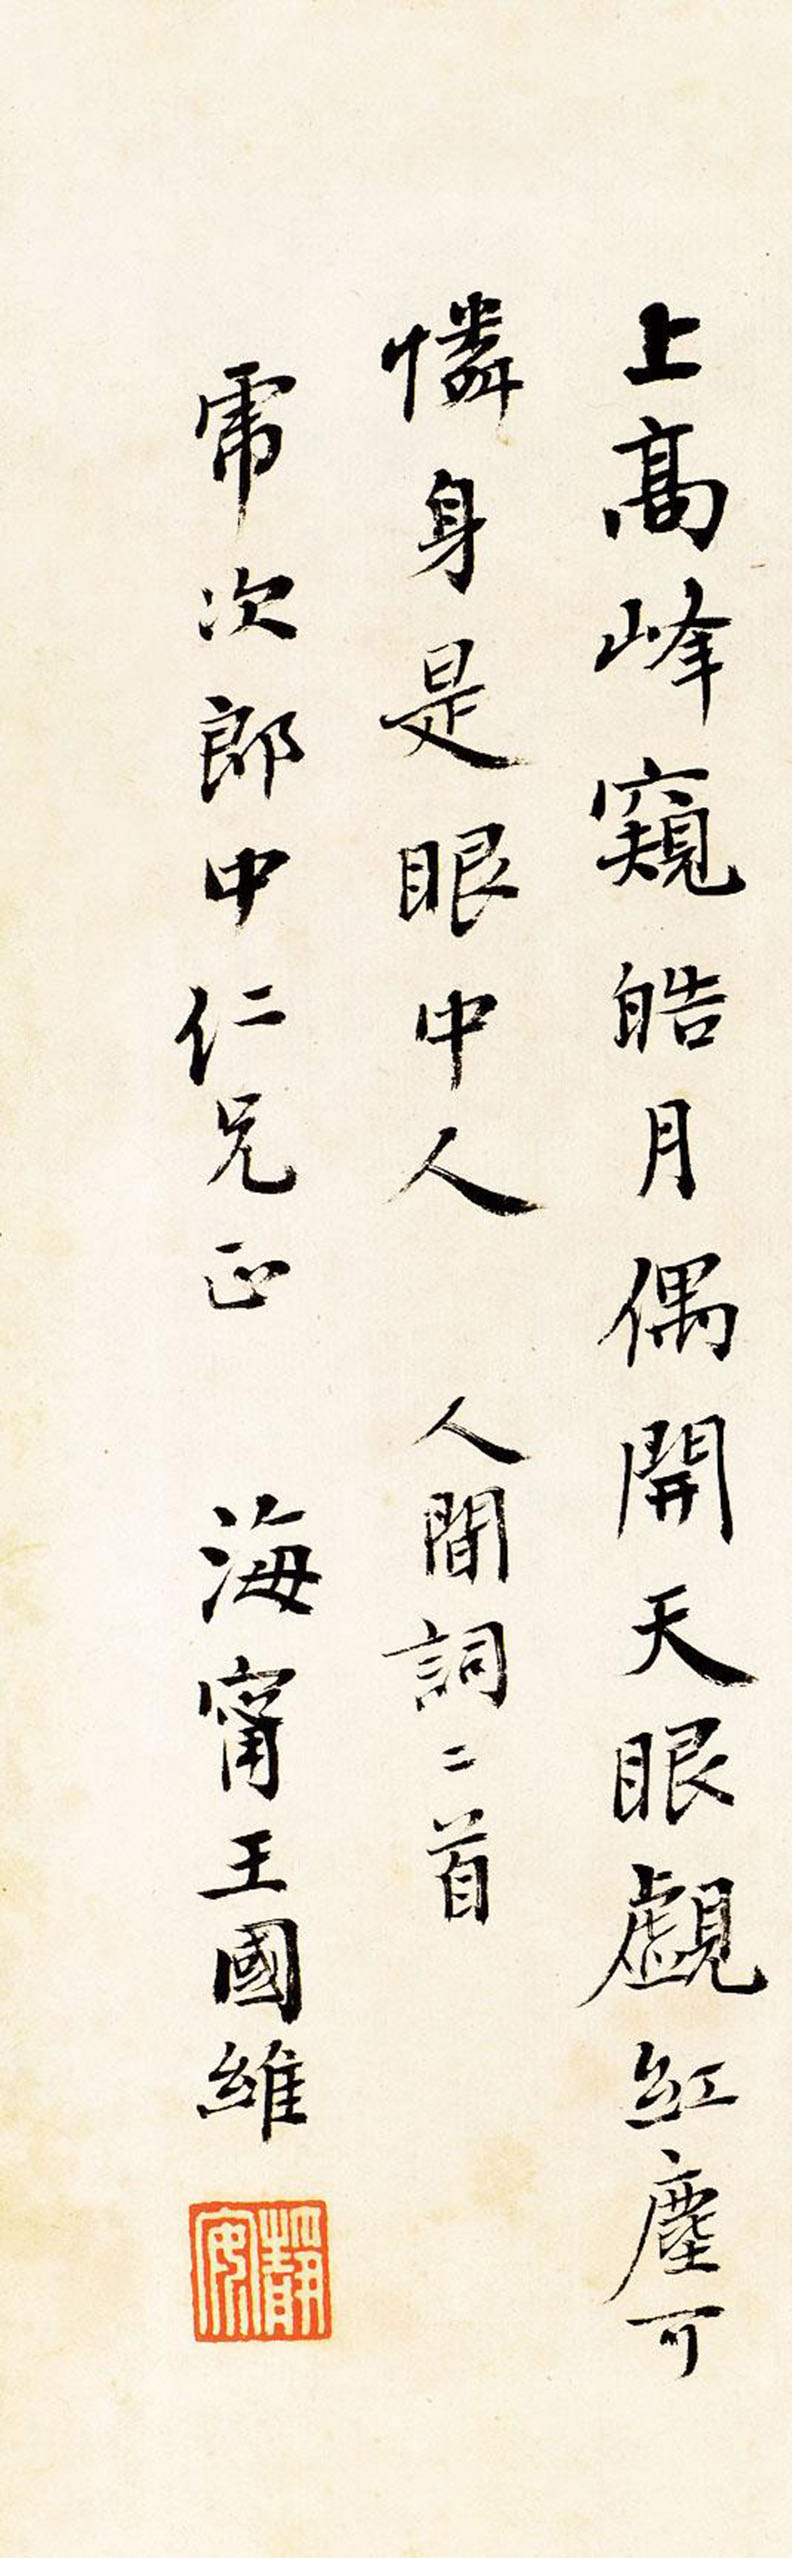 上高峰窺皓月偶開天眼覷紅塵可
憐身是眼中人 人間詞二首
霈次郎中仁兄正 海甯王國維
靜安